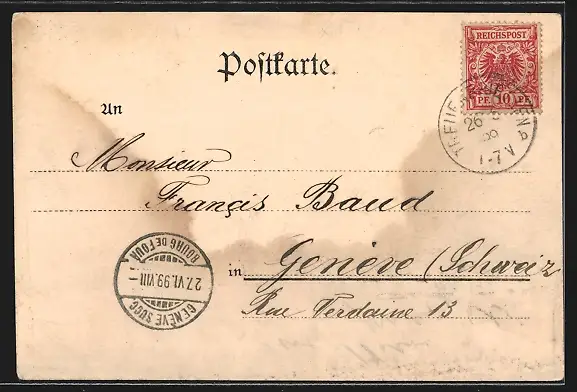 REICHSPOST
10 PF
Postkarte.
26
1-7V
An
Monsieur
Francis Baud
in Genève (Schweiz
Rue Verdaine 13
BOURG DE FOUR
27.VI.99.VIII-
GENÈVE SUCC.